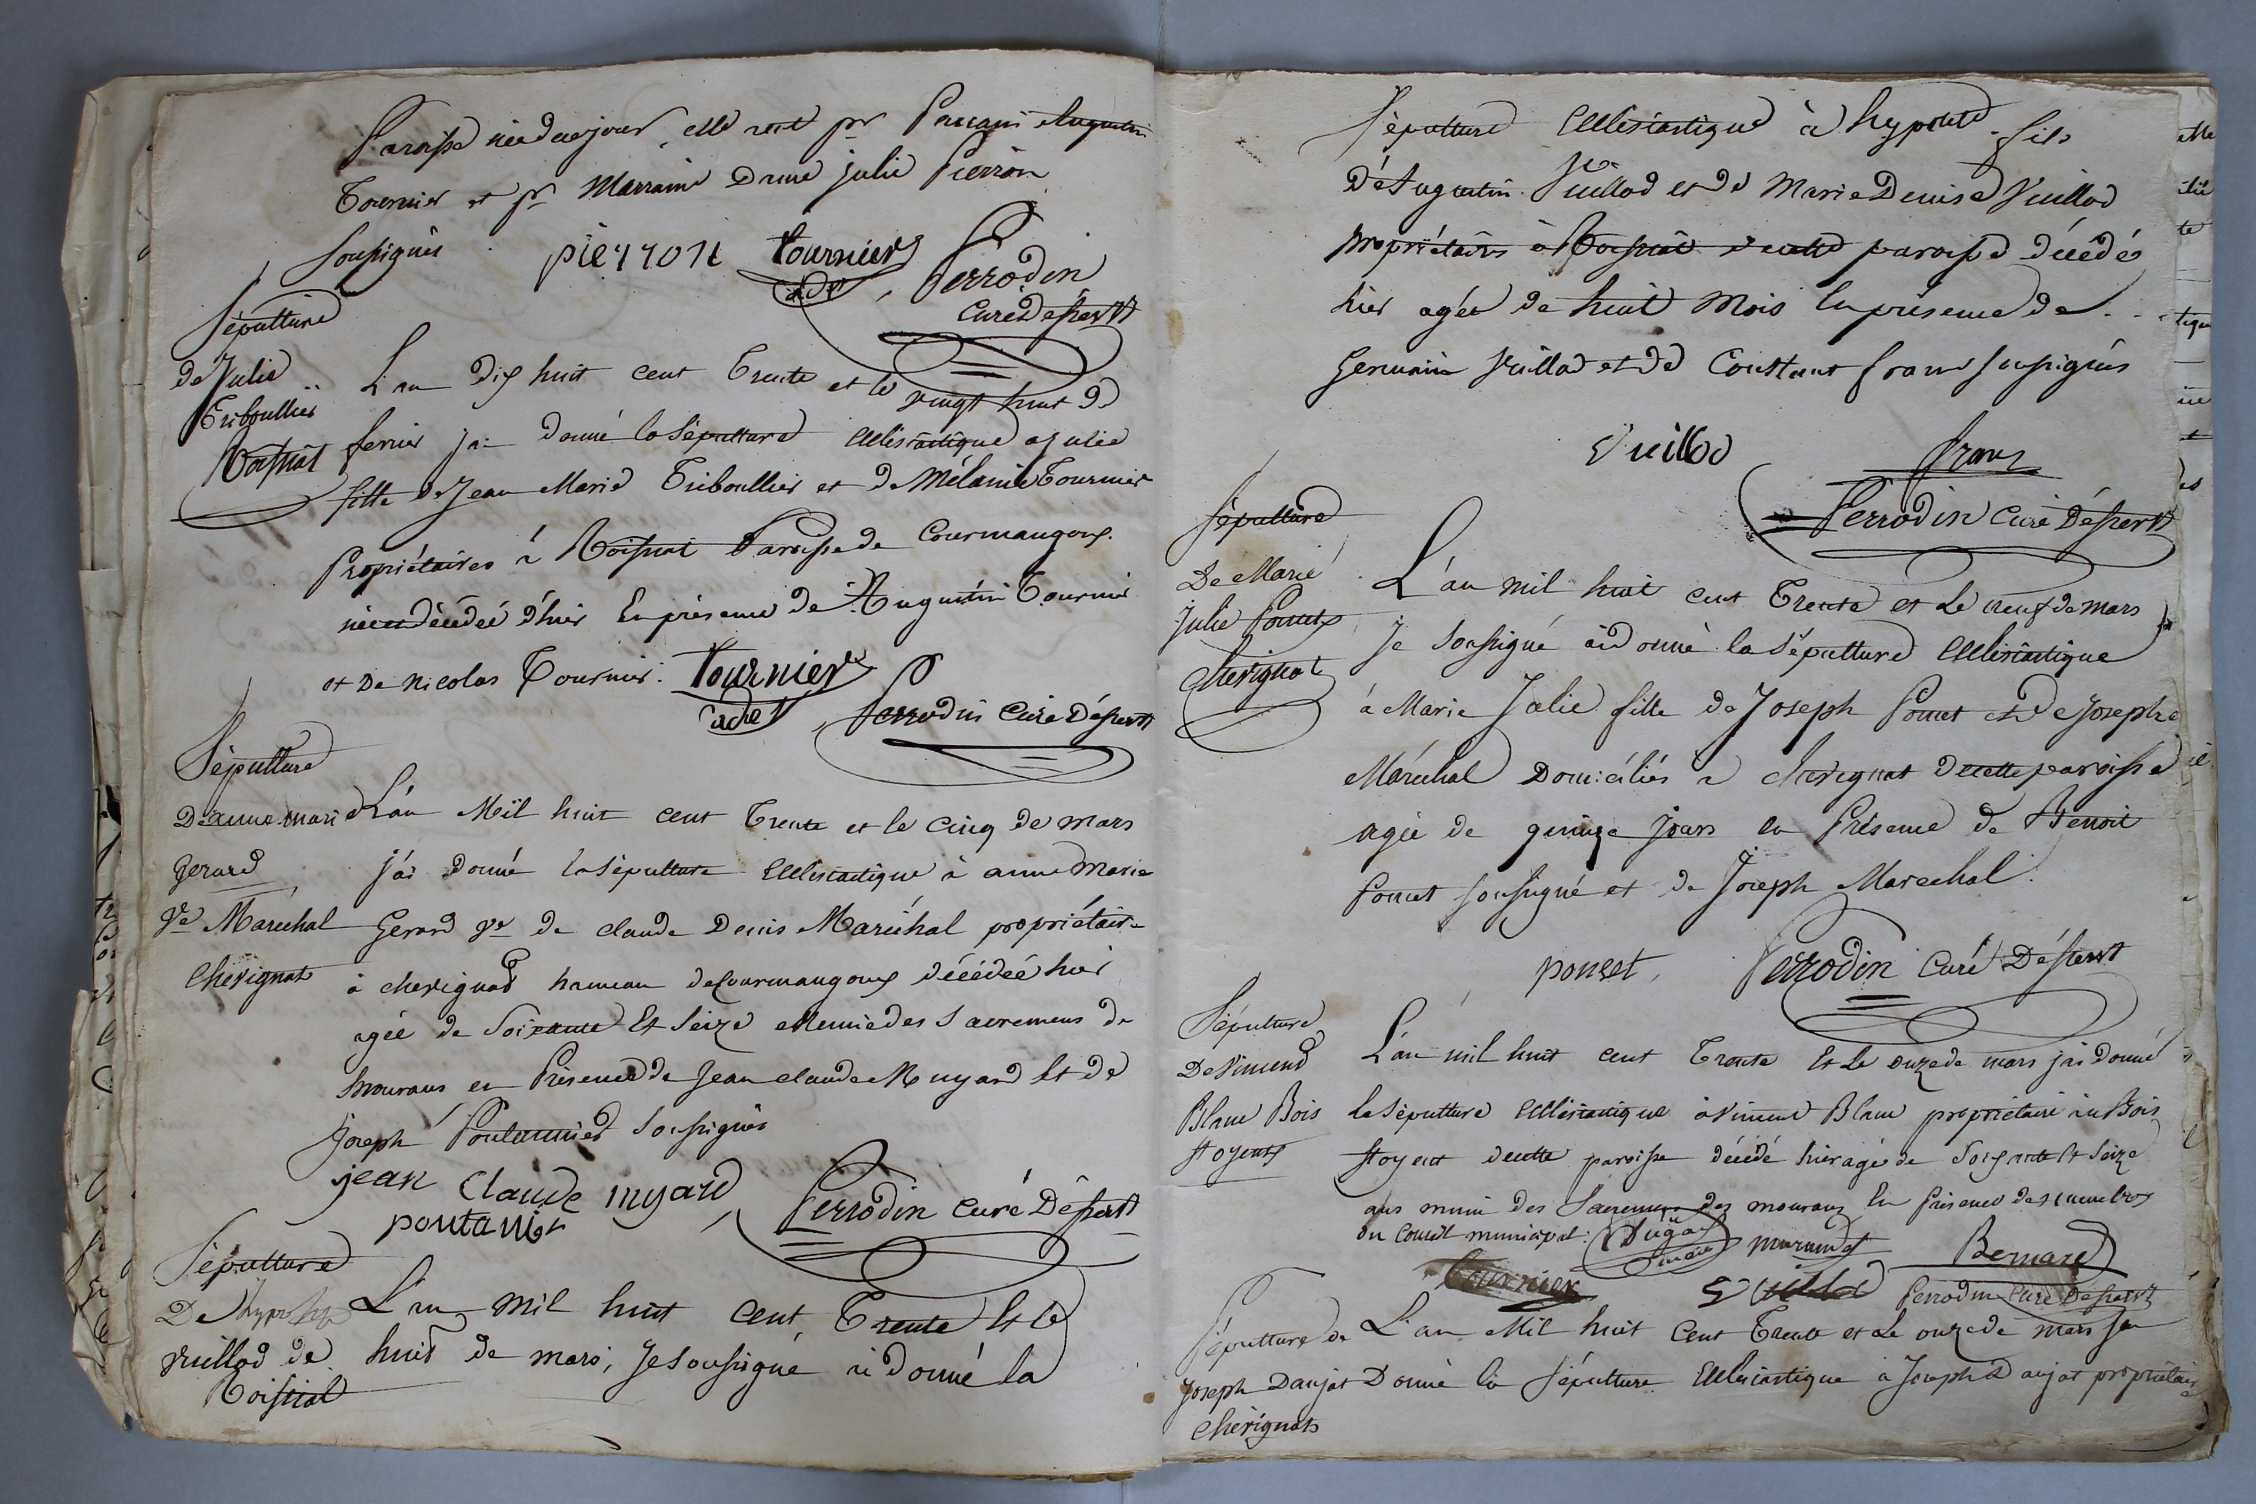 Paroisse née ce jour, elle a eu pr Parrain Augustin
Tournier et pr Marraine Dame julie Pierron
soussignés pierron tournier
adt Perrodin
curé Dessert
Sépulture
de Julie
Triboullier
Roissiat
L'an dix huit cent Trente et le vingt huit de
fevrier j'ai donné la Sépulture ecclésiastique a julie
fille de Jean Marie Triboullier et de Mélanie Tournier
Propriétaires à Roissiat Paroisse de Courmangoux
née et décédée d'hier En présence de Augustin Tournier
et De nicolas Tournier. tournier
adt Perrodin curé Dessert
Sépulture
De anne marie
Gerard
ve Maréchal
Chevignat
L'an Mil huit cent Trente et le cinq de mars
j'ai donné la Sépulture Ecclésiastique à anne Marie
Gerard ve de claude Denis Maréchal propriétaire
à chevignat hameau de Courmangoux décédée hier
agée de Soixante Et Seize et Munie des Sacremens de
mourans en Présence de jean claude Nuyard Et de
joseph Poutannier Soussignés
jean Claude nuyard Perrodin curé Dessert
poutanier
Sépulture
De hypolite
vuillod de
Roissiat
L'an mil huit cent Trente Et le
huit de mars, Je soussigné ai donné la
Sépulture Ecclésiastique à hypolite fils
d'Augustin Vuillod et de Marie Denise Vuillod
propriétaires à Roissiat de cette paroisse décédé
hier agée de huit Mois En présence de
Germain Vuillod et de Constant franc soussignés
Vuillod franc
Perrodin curé Dessert
Sépulture
De Marie
Julie Poncet
Chevignat
L'an mil huit cent Trente et Le neuf de mars
Je Soussigné ai donné la Sépulture Ecclésiastique
à Marie Julie fille de Joseph Poncet et de Josephe
Maréchal Domiciliés a chevignat de cette paroisse
agée de quinze jours en Présence de Benoit
Poncet soussigné et de Joseph Marechal.
ponset, Perrodin curé Dessert
Sépulture
De Vincend
Blanc Bois
L'an mil huit cent Trente Et Le onze de mars j'ai donné
la Sépulture Ecclésiastique à Vincent Blanc propriétaire au Bois
de cette paroisse décédé hier agé de Soixante Et Seize
ans muni des Sacremens des mourans En présence des membres
du Conseil municipal: Bernard
tournier vuillod Perrodin Curé Dessert
Sépulture de
Joseph Danjat
Chevignat
L'an Mil huit Cent Trente et Le onze de mars j'ai
Donné la Sépulture Ecclésiastique à Joseph Danjat propriétaire